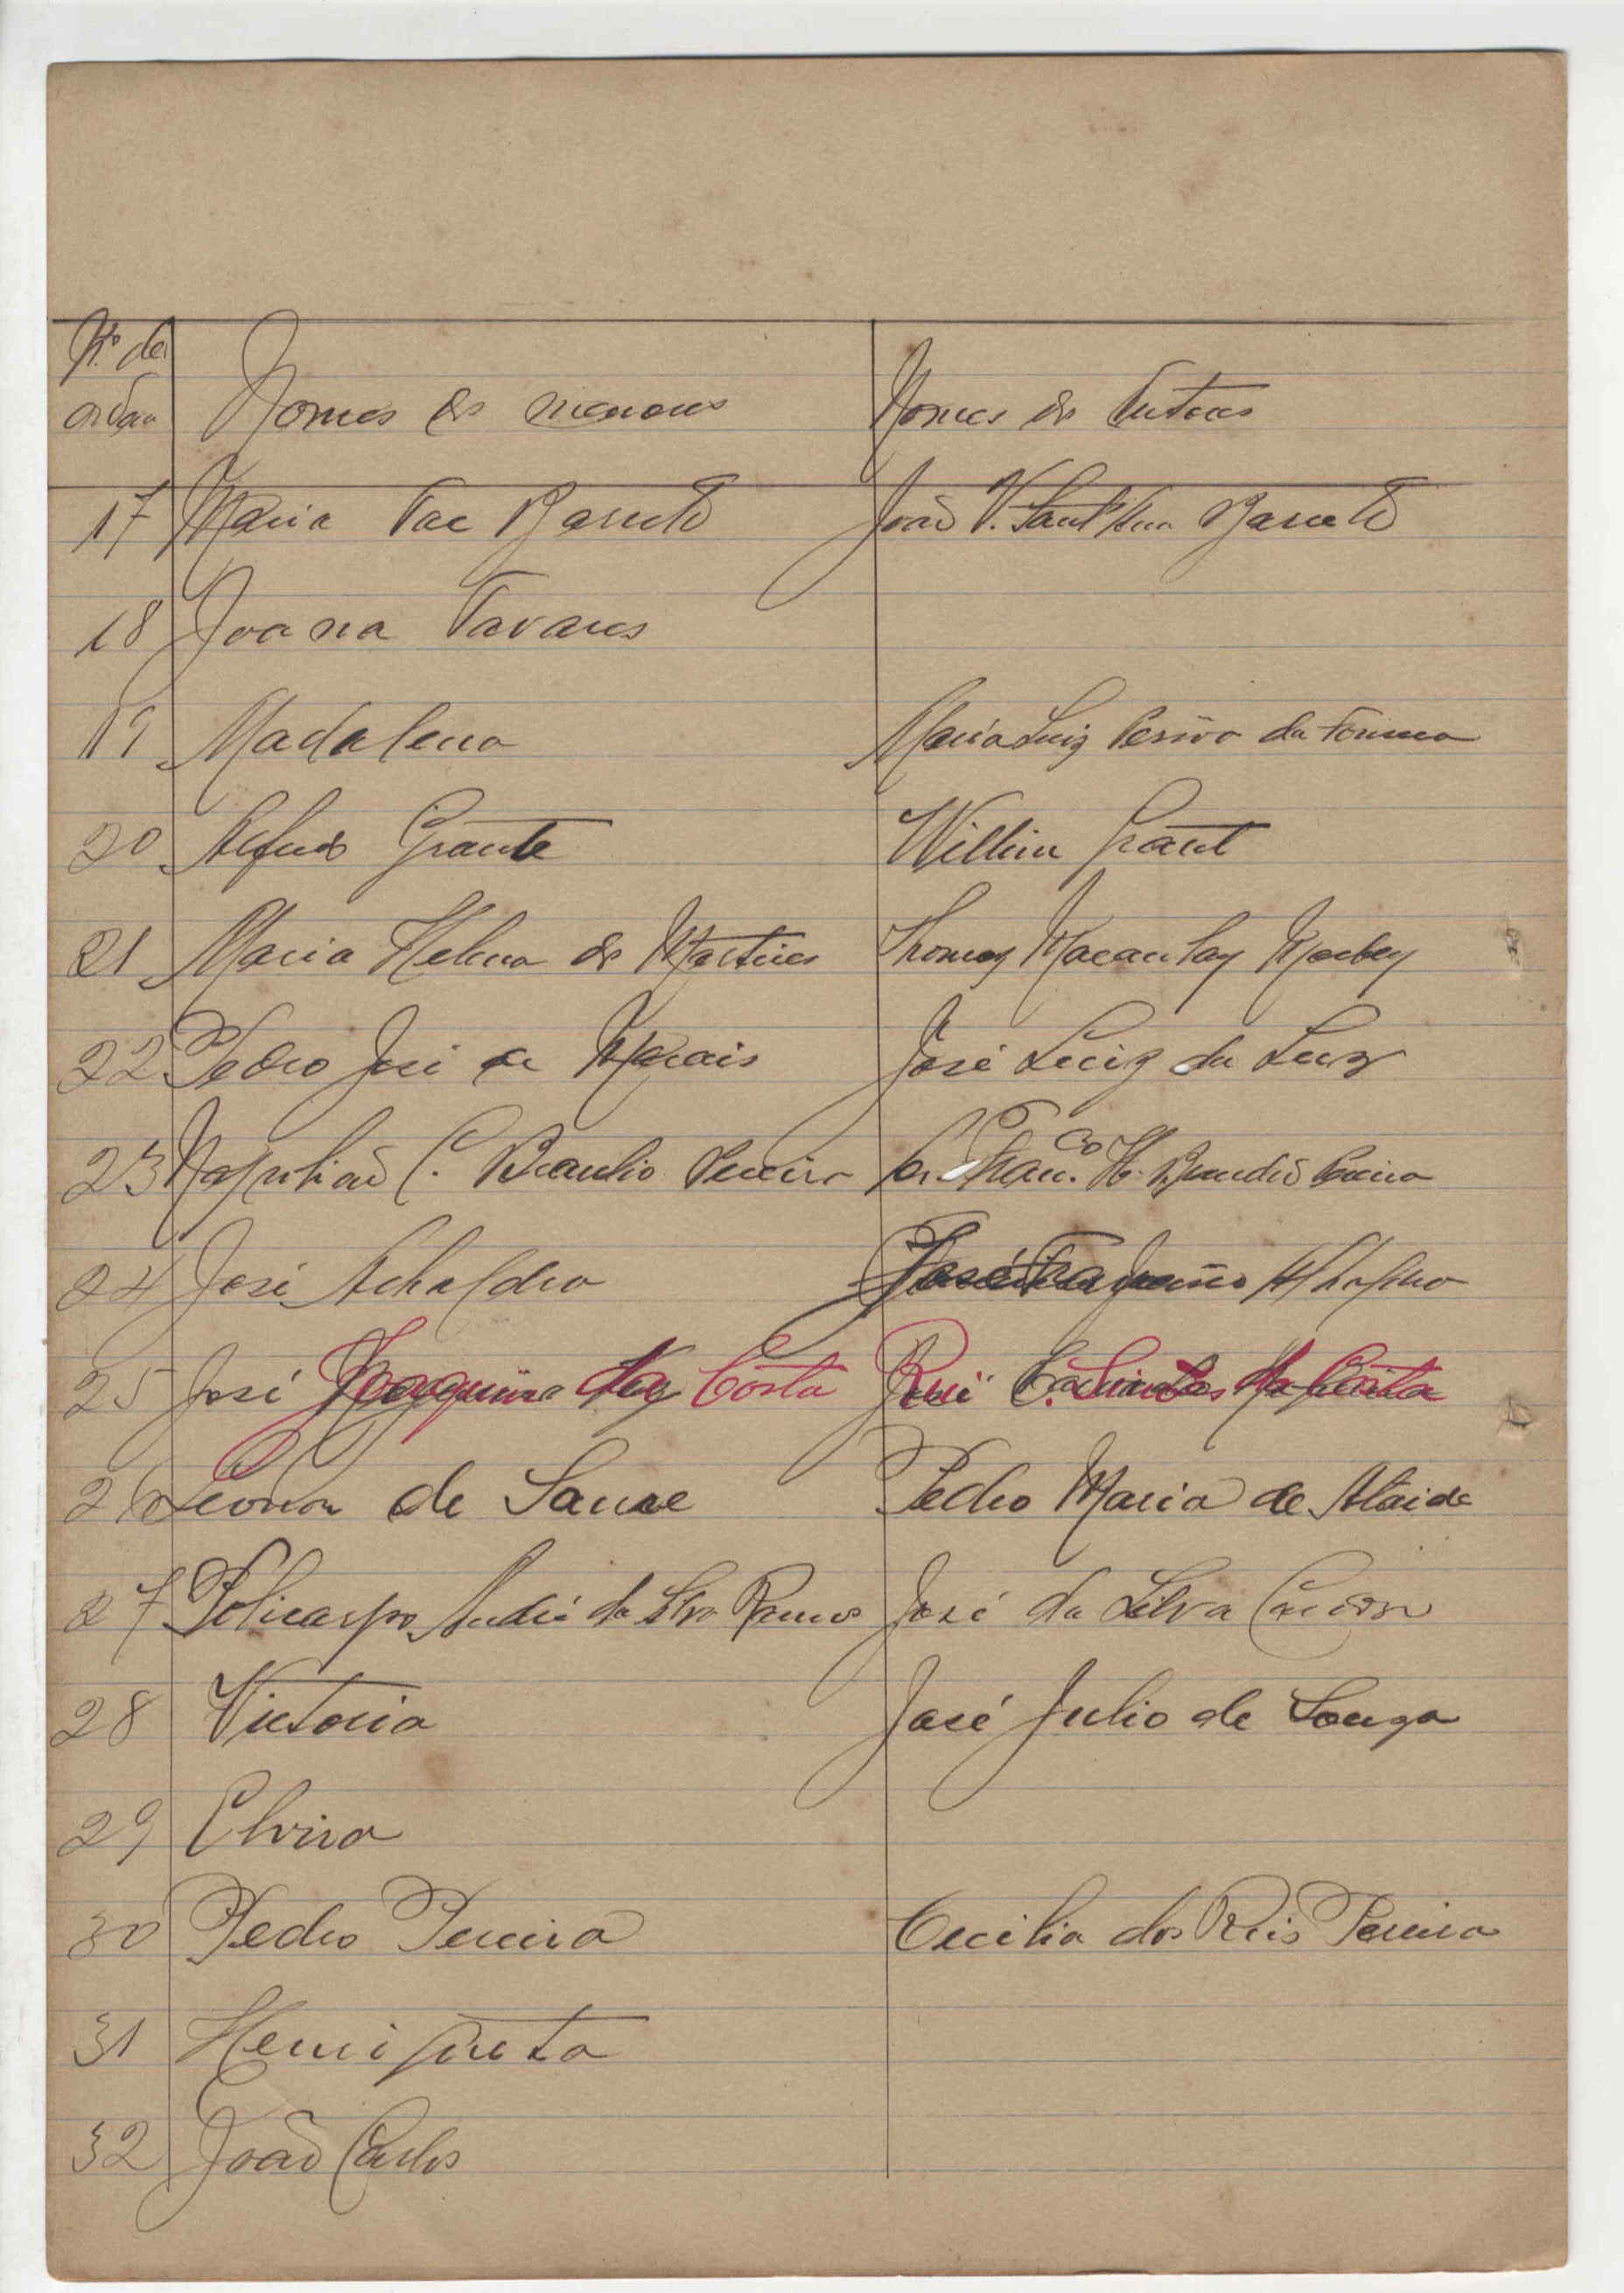 Nº de
ordem Nomes dos menores Nomes dos Tutores
17 Maria Vaz Barreto João V. Sant'Ana Barreto
18 Joana Tavares
19 Madalena Maria Luiz da Fonseca
20 Alfredo Grante William Grant
21 Maria Helena de Martines Thomas Macaulay
22 Pedro José de Morais José Luiz da Luz
23 Napolião C. Braulio Pereira Franco. H. Pereira
24 José
25 José Joaquim da Costa Rui C. Santos da Costa
26 Leonor de Pedro Maria de Ataide
27 Policarpo André da Silva Ramos José da Silva
28 Victoria José Julio de Souza
29 Elvira
30 Pedro Pereira Cecilia dos Reis Pereira
31 Henriqueta
32 João Carlos